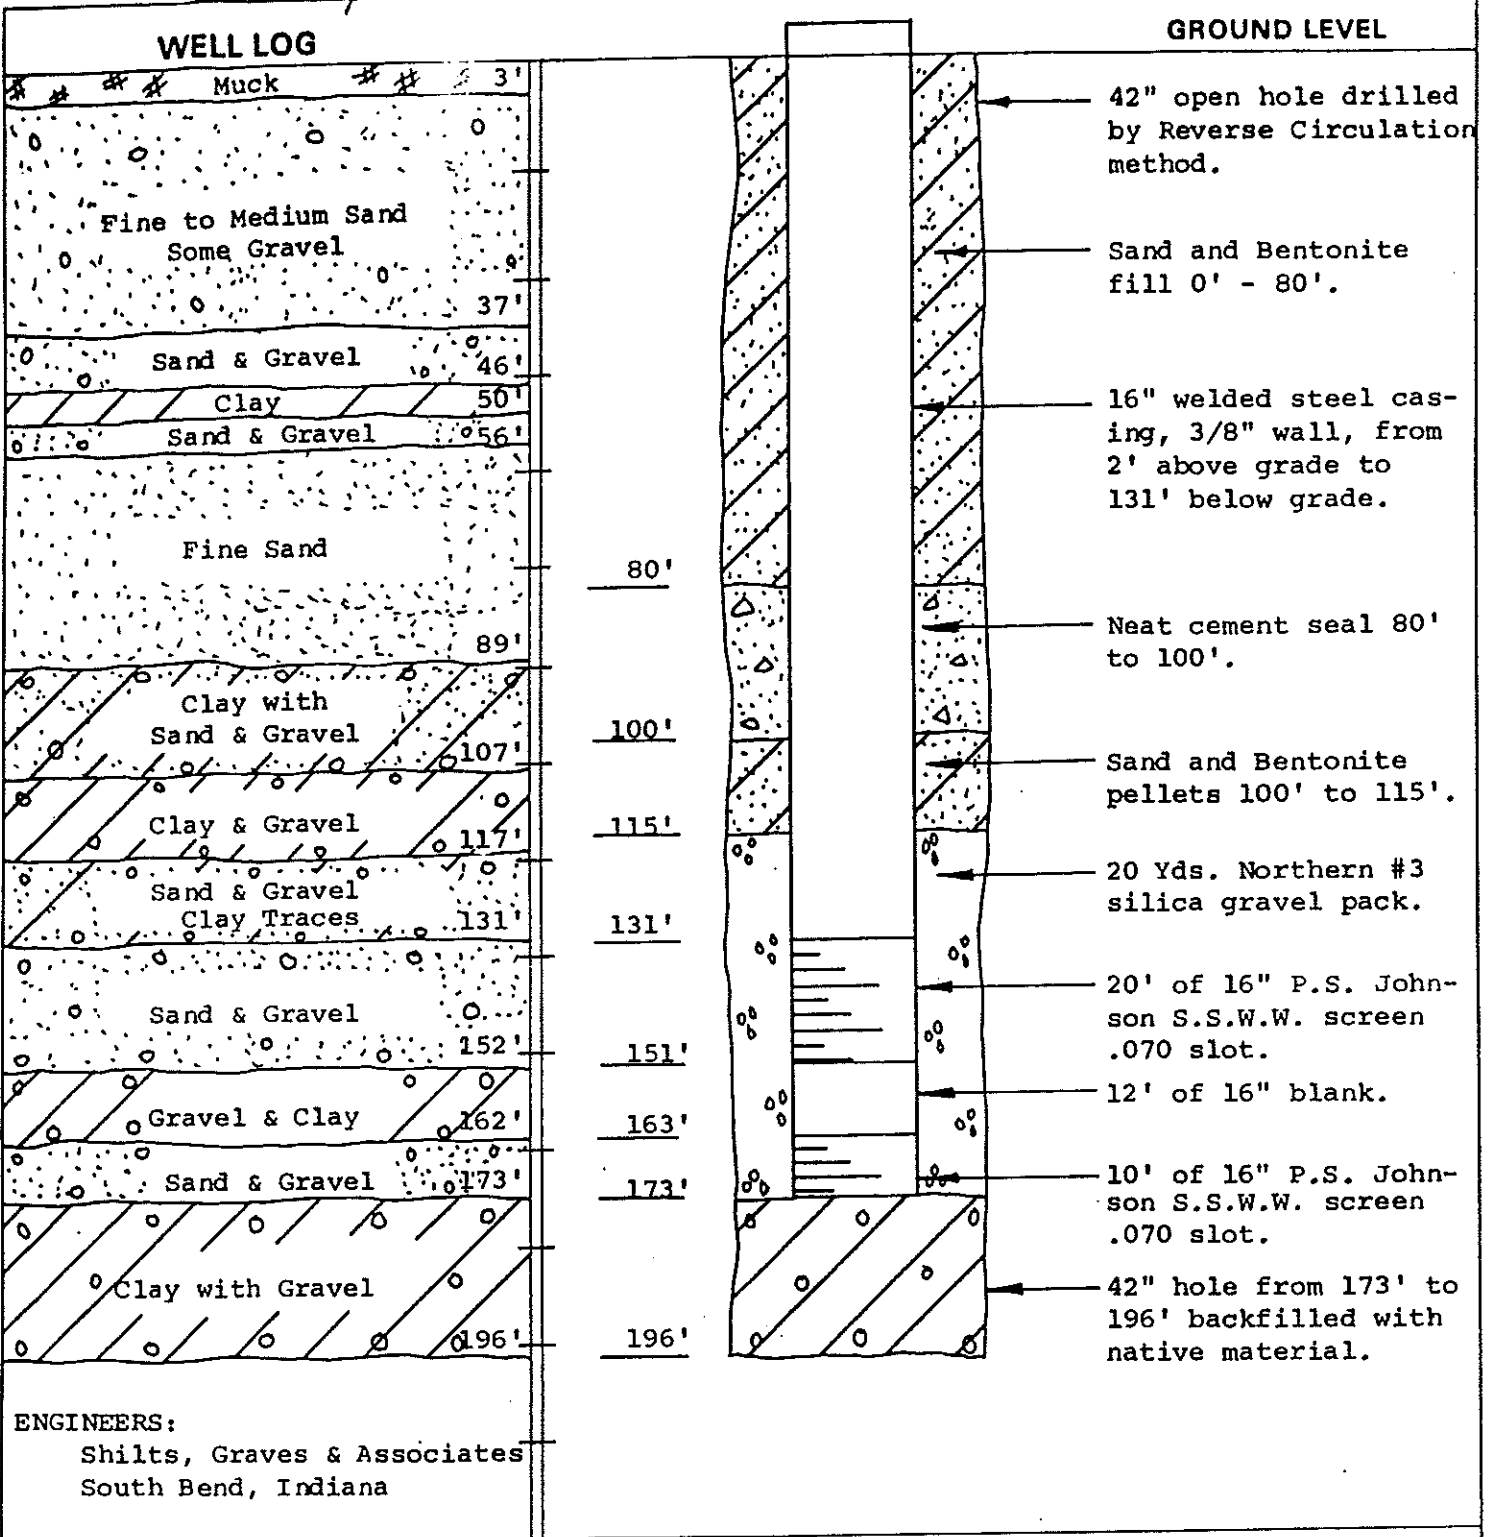 WELL LOG
Muck 3'
Fine to Medium Sand
Some Gravel
37'
Sand & Gravel
46'
Clay 50'
Sand & Gravel 56'
Fine Sand
89'
Clay with
Sand & Gravel
107'
Clay & Gravel
117'
Sand & Gravel
Clay Traces 131'
Sand & Gravel
152'
Gravel & Clay 162'
Sand & Gravel 173'
Clay with Gravel
196'
ENGINEERS:
Shilts, Graves & Associates
South Bend, Indiana
80'
100'
115'
131'
151'
163'
173'
196'
GROUND LEVEL
42" open hole drilled
by Reverse Circulation
method.
Sand and Bentonite
fill 0' - 80'.
16" welded steel cas-
ing, 3/8" wall, from
2' above grade to
131' below grade.
Neat cement seal 80'
to 100'.
Sand and Bentonite
pellets 100' to 115'.
20 Yds. Northern #3
silica gravel pack.
20' of 16" P.S. John-
son S.S.W.W. screen
.070 slot.
12' of 16" blank.
10' of 16" P.S. John-
son S.S.W.W. screen
.070 slot.
42" hole from 173' to
196' backfilled with
native material.